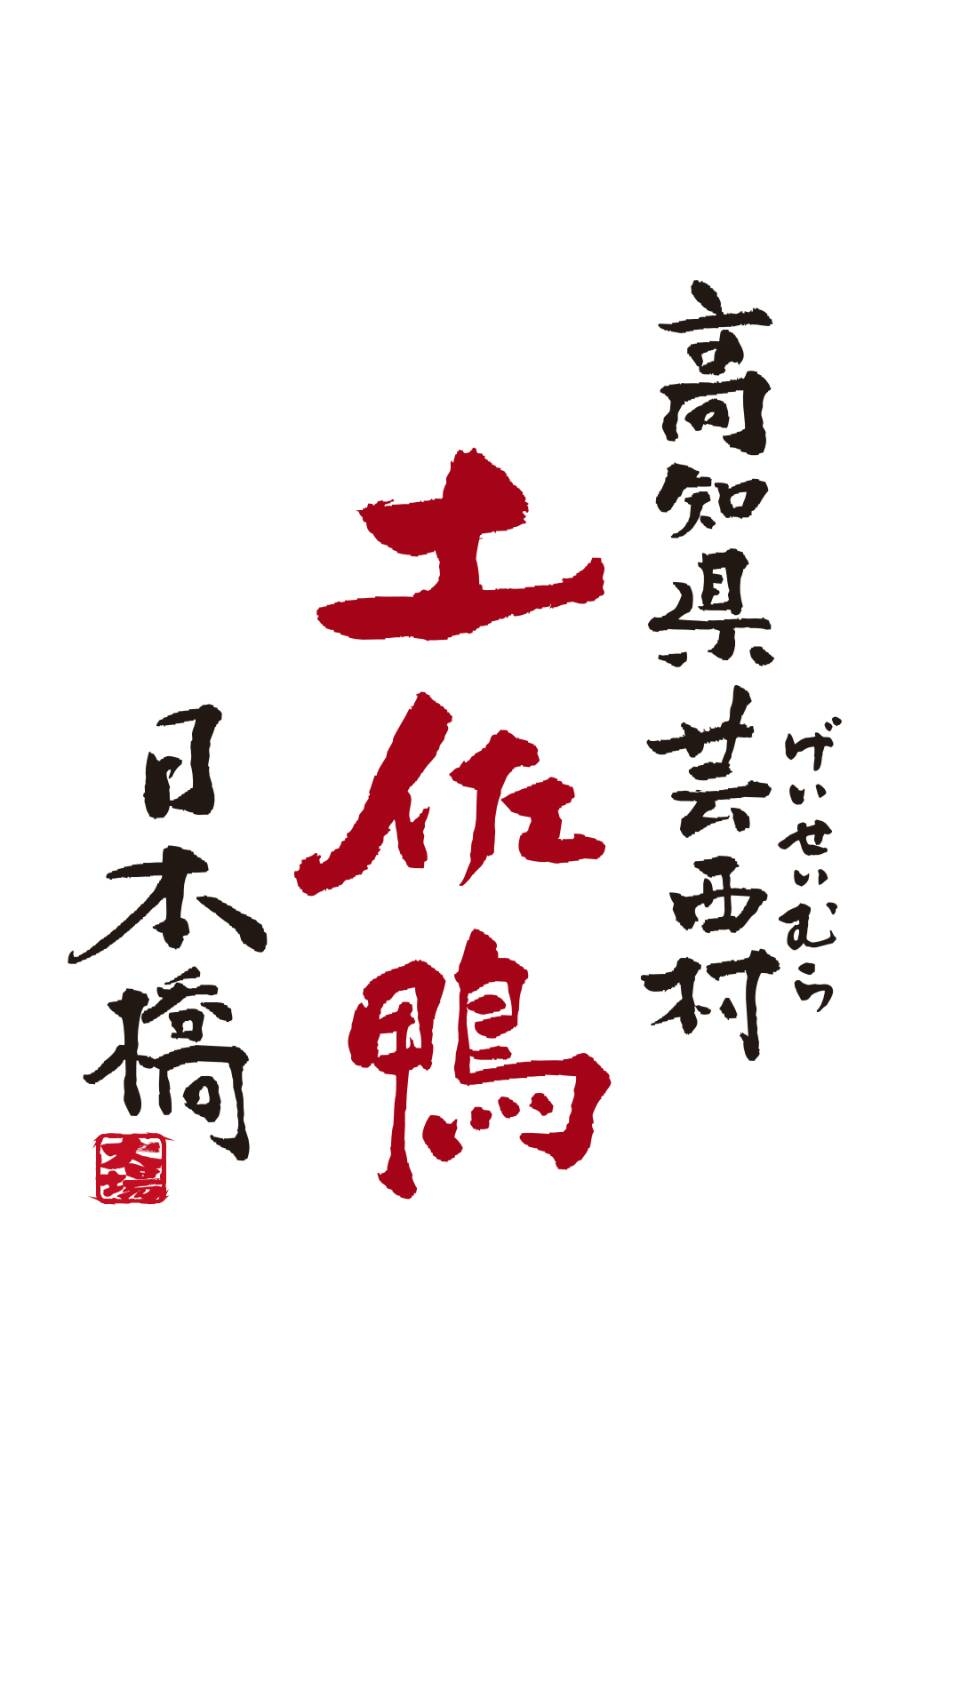 高知県芸西村
げいせいむら
土佐鴨
日本橋
大場